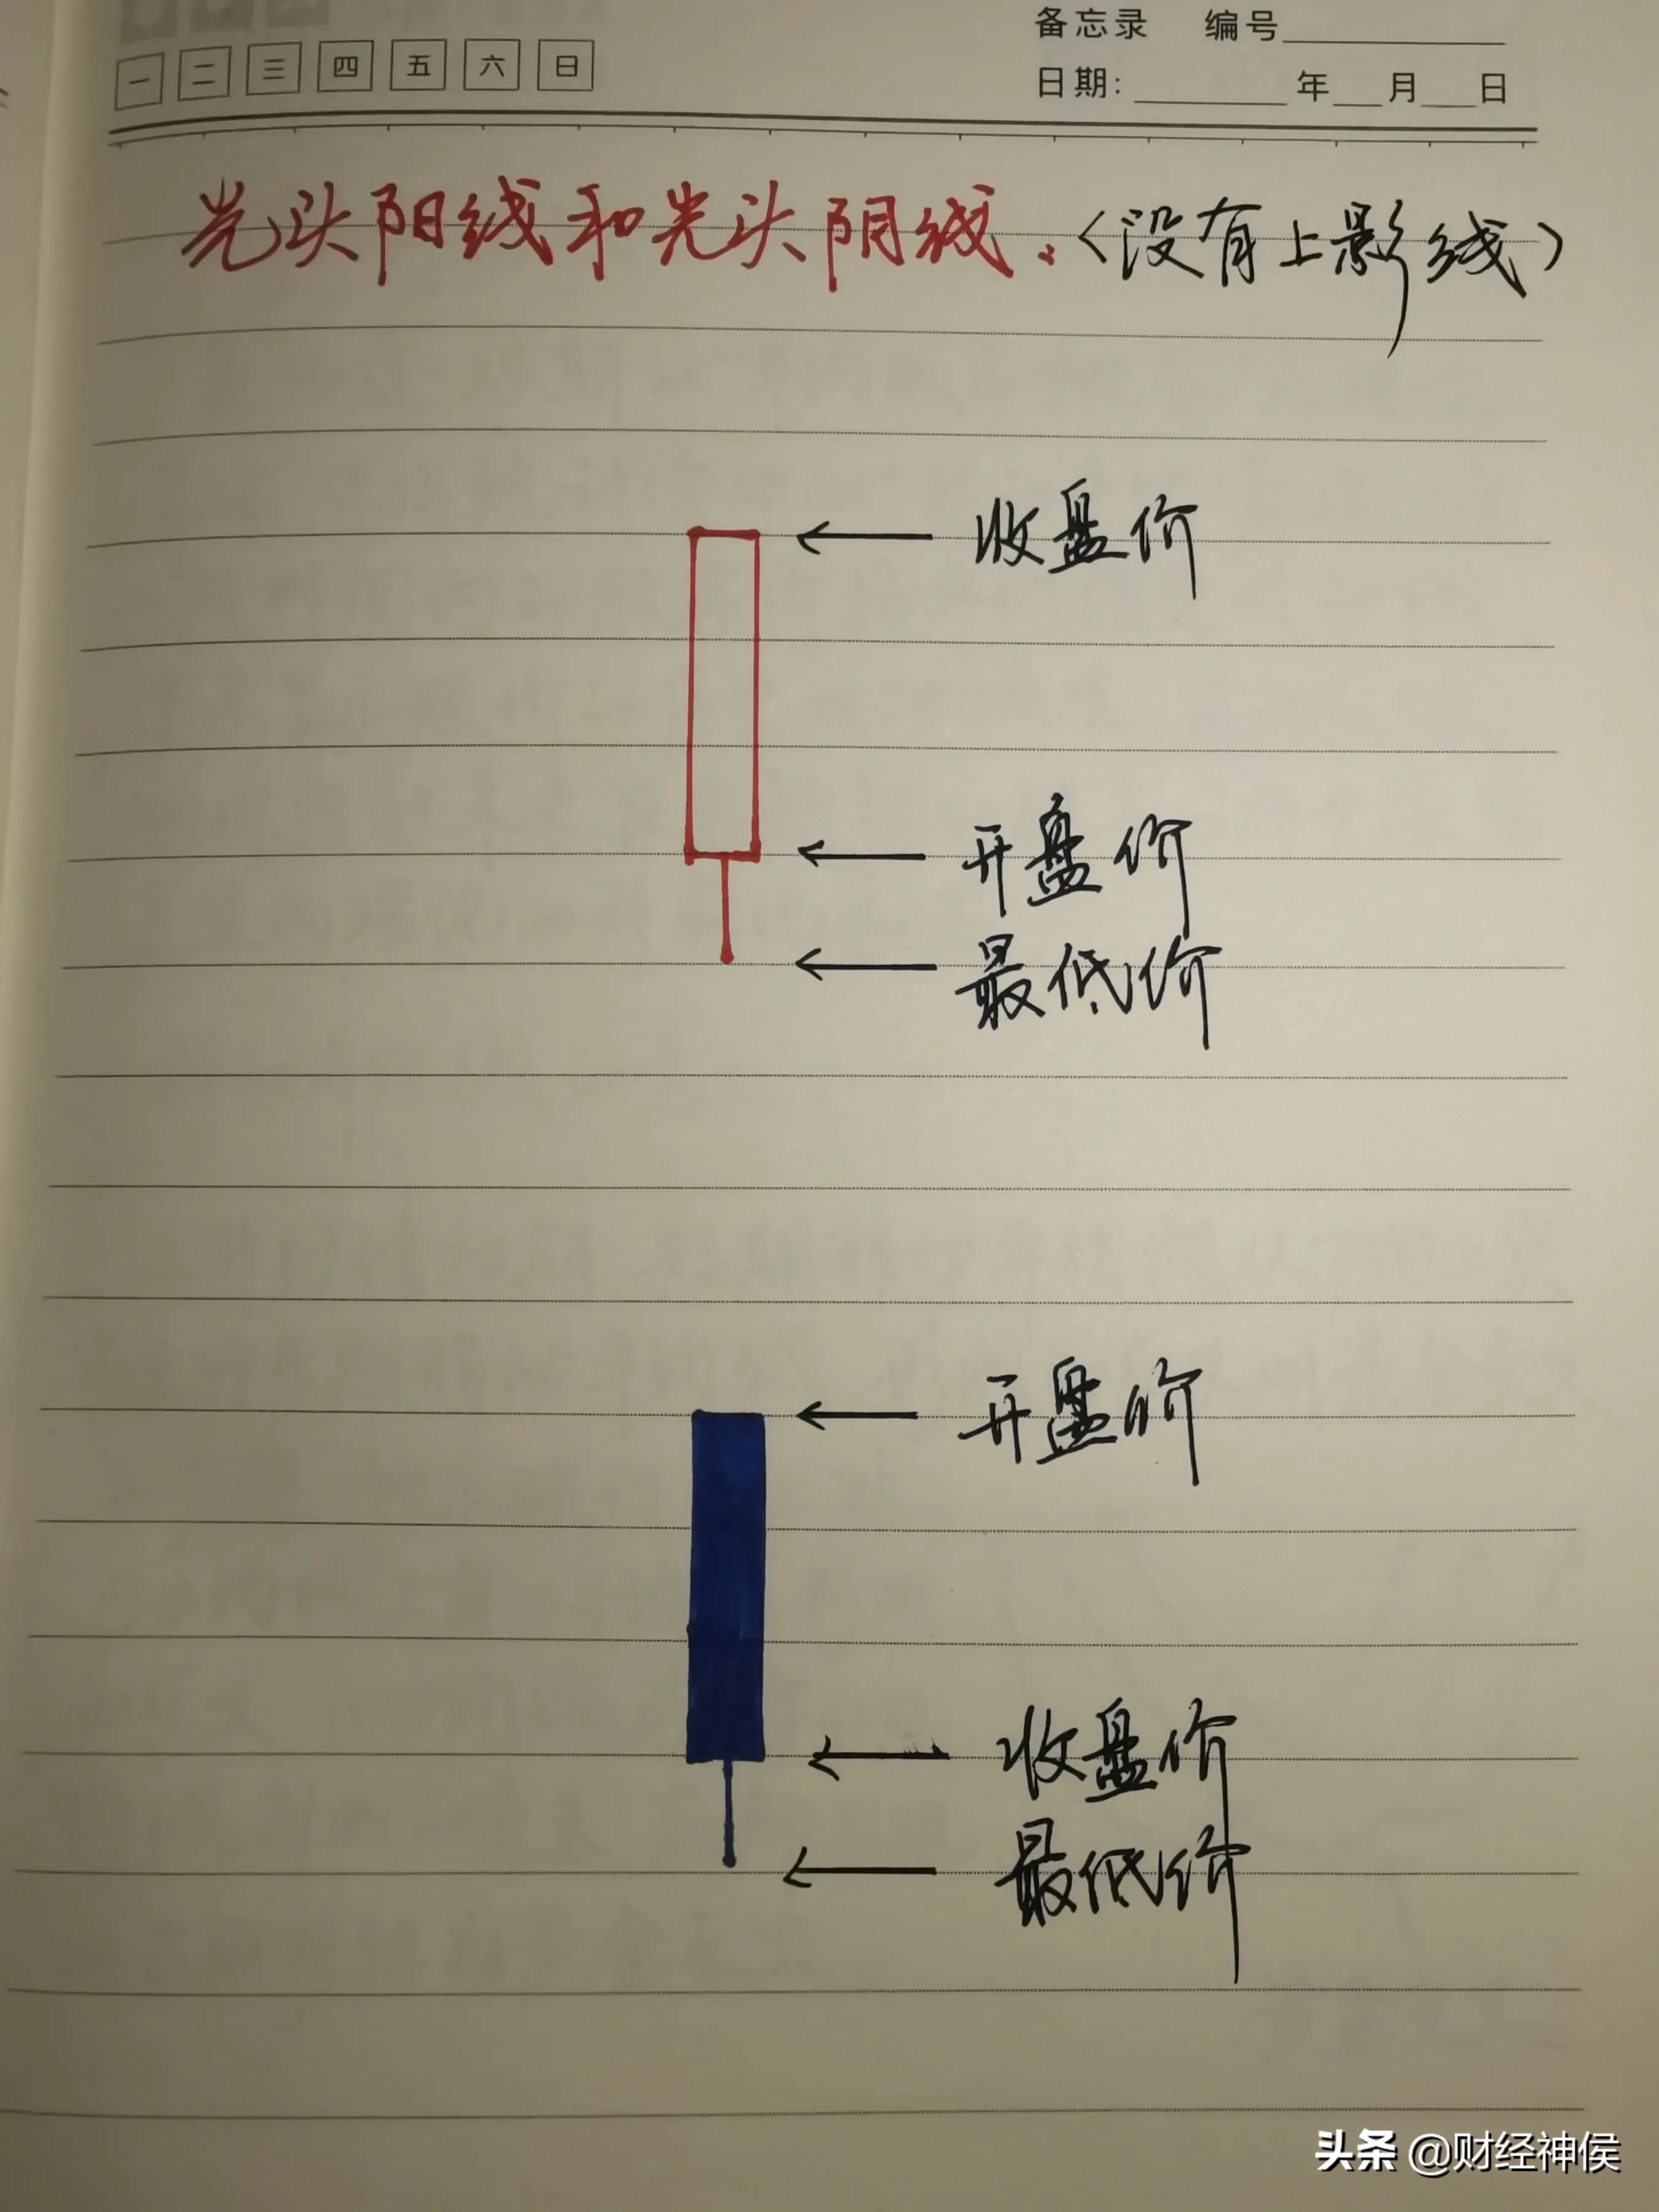 备忘录 编号
一 二 三 四 五 六 日
日期: 年 月 日
光头阳线和光头阴线.<没有上影线>
收盘价
开盘价
最低价
开盘价
收盘价
最低价
头条 @财经神侯